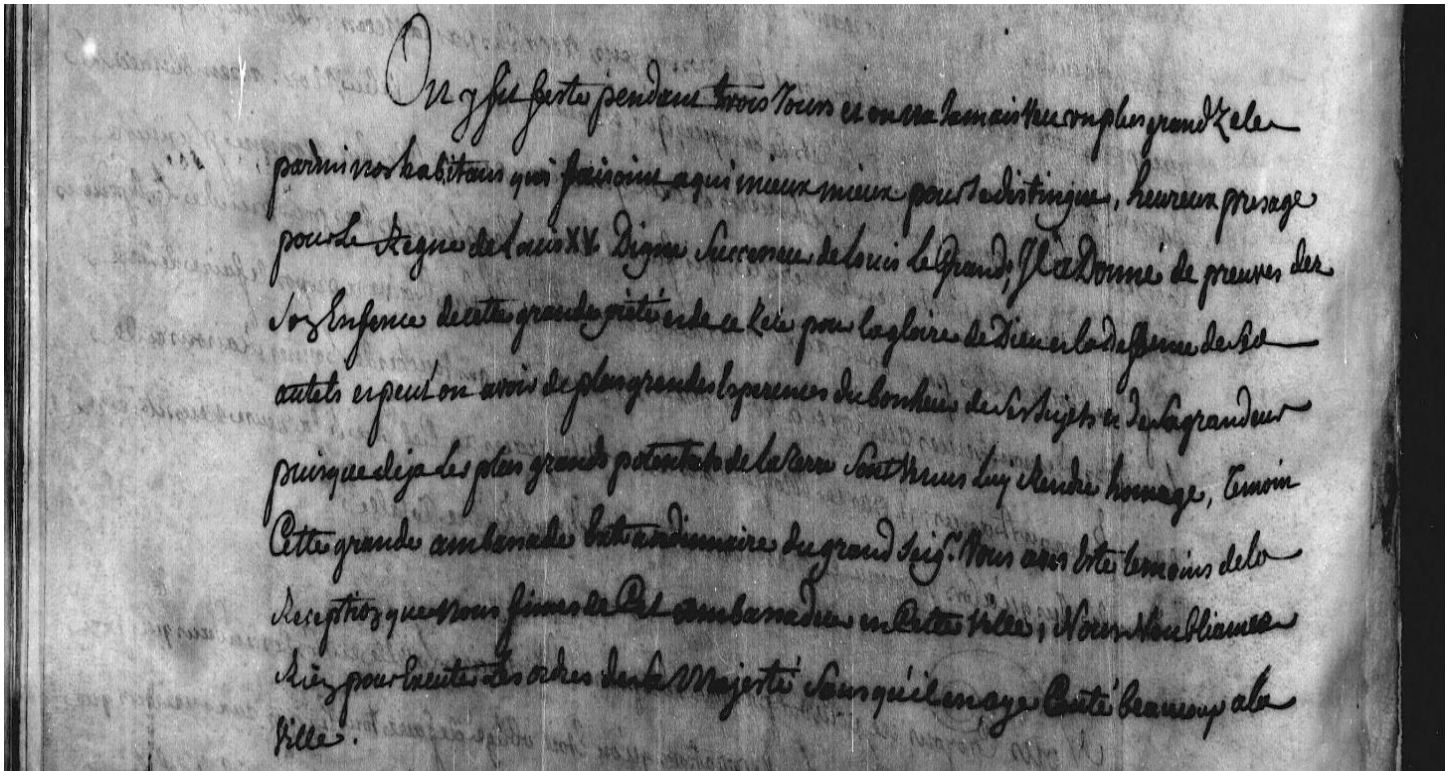 On y fit feste pendant trois Jours et on na Jamais veu un plus grand Zele
parmi nos habitans qui faisoint a qui mieux mieux pour se distinguer, heureux presage
pour Le Regne de Louis XV Digne Successeur de Louis Le Grand, Jl a Donné de preuves dez
son Enfence de cette grande piété et de ce Zele pour la gloire de Dieu et la Deffense de Sa
autels et peut on avoir de plus grandes Esperences du bonheur de Ses Sujets et de Sa grandeur
puisque deja Les plus grands potentats de la Terre Sont venus Luy Rendre homage, Temoin
Cette grande ambassade Extraordinnaire du grand Seigr. Vous aves Este temoins de la
Reception que Nous fimes de Cet ambassadeur en Cette Ville, Nous Noubliames
Rien pour Executer Les ordres de Sa Majesté Sans qu'il en aye Couté beaucoup a la
Ville.